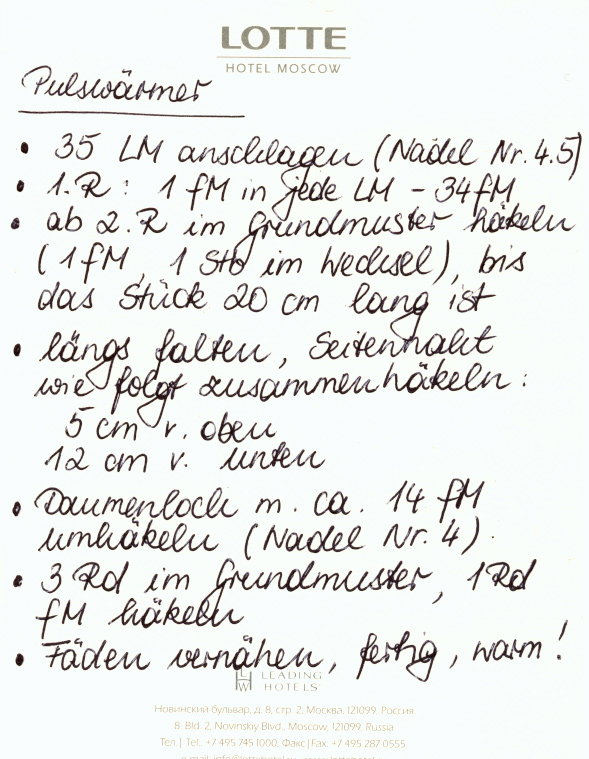 LOTTE
HOTEL MOSCOW
Pulswärmer
• 35 LM anschlagen (Nadel Nr. 4.5)
• 1. R : 1 fM in jede LM - 34 fM
• ab 2. R im Grundmuster häkeln
(1 fM, 1 Stb im Wechsel), bis
das Stück 20 cm lang ist
• längs falten, Seitennaht
wie folgt zusammenhäkeln :
5 cm v. oben
12 cm v. unten
• Daumenloch m. ca. 14 fM
umhäkeln (Nadel Nr. 4).
• 3 Rd im Grundmuster, 1 Rd
fM häkeln
• Fäden vernähen, fertig, warm!
LHW LEADING
HOTELS
Новинский бульвар, д. 8, стр. 2, Москва, 121099, Россия
8. Bld. 2, Novinskiy Blvd., Moscow, 121099, Russia
Тел.| Tel.: +7 495 745 1000, Факс| Fax: +7 495 287 0555